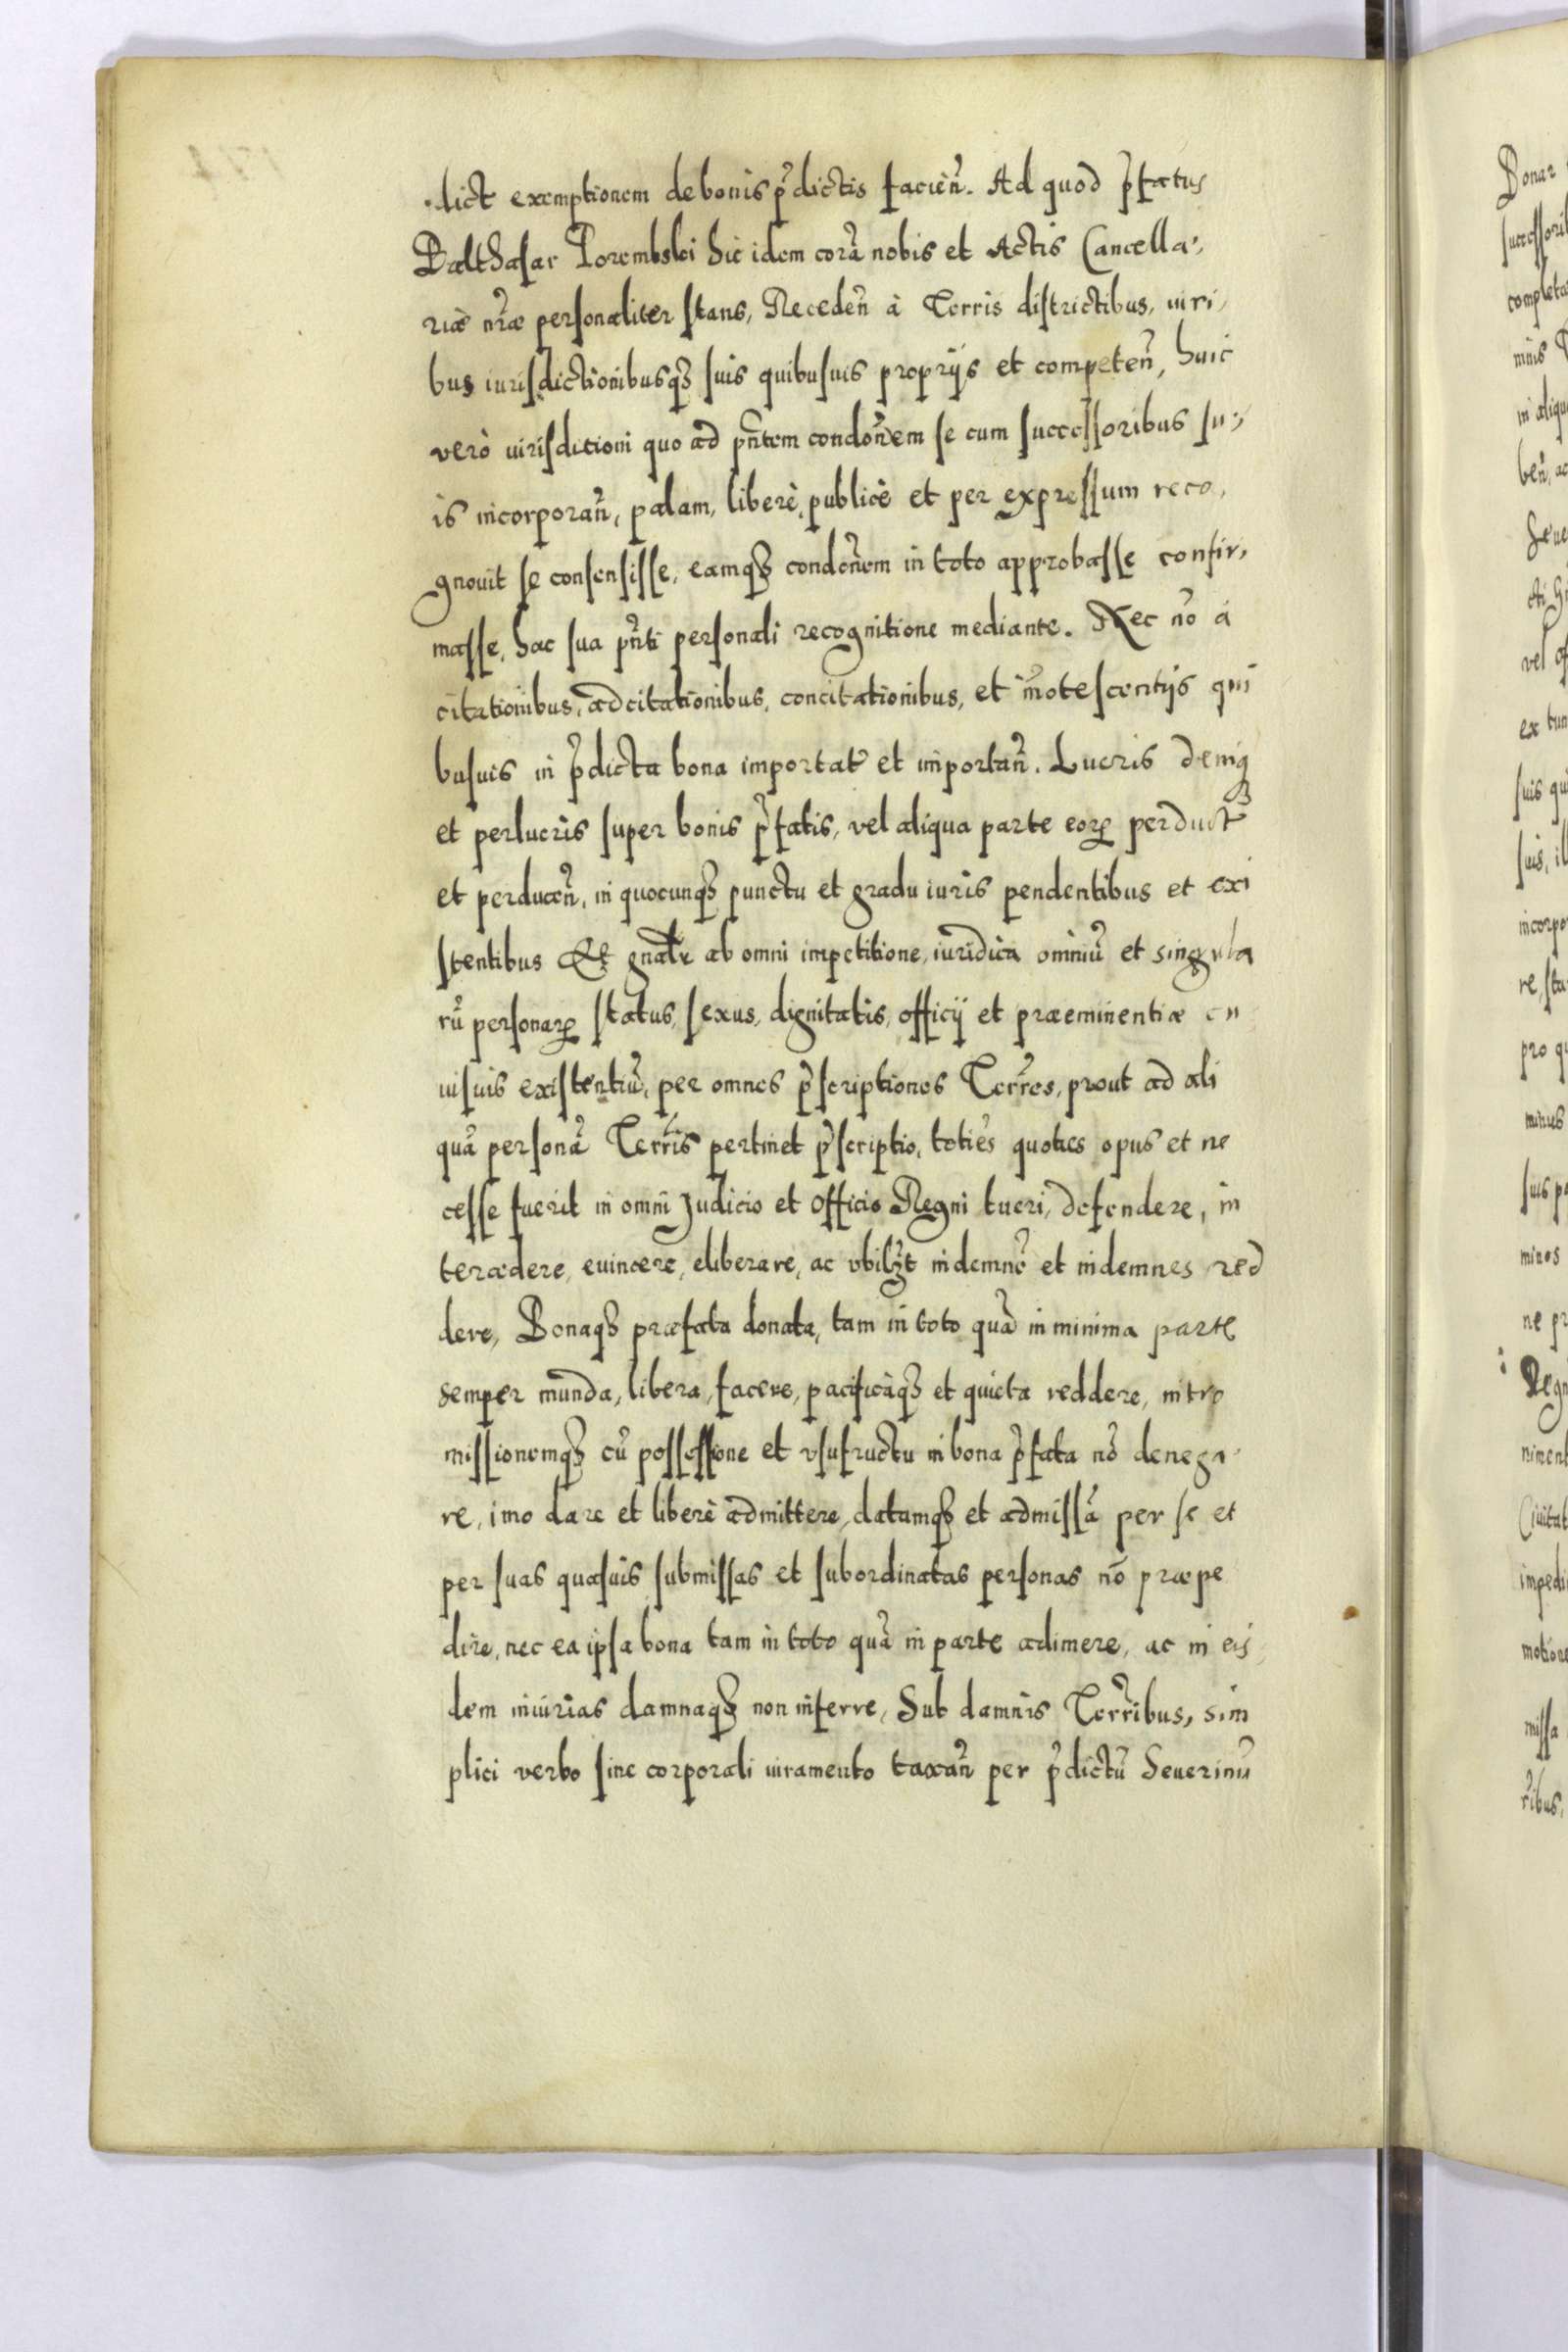 dict exemptionem de bonis p̃dictis facień. Ad quod p̃fatus
Balthasar Porembski hic idem corã nobis et Actis Cancella-
riæ nr̃æ personaliter stans, Recedeñ à Terris districtibus, iuri,
bus iurisdictionibusqȝ suis quibusuis proprijs et competeñ, huic
verò iurisditioni quo ad pñtem condoñem se cum successoribus su,
is incorporañ, palam, liberè, publicè et per expressum reco,
gnouit se consensisse, eamqȝ condoñem in toto approbasse confir,
masse, hac sua pñti personali recognitione mediante. Nec nõ à
citationibus, adcitationibus, concitationibus, et ĩnotescentijs qui
busuis in p̃dicta bona importat̃ et importañ. Lucris deniqȝ
et perlucris super bonis p̃fatis, vel aliqua parte eoꝝ perduct̃
et perduceñ, in quocunqȝ punctu et gradu iuris pendentibus et exi
stentibus Et gñalr̃ ab omni impetitione iuridica omniũ et singula
rũ personaꝝ status, sexus, dignitatis, officij et praeminentiæ cu
iusuis existentiũ, per omnes p̃scriptiones Terr̃es, prout ad ali
quã personã Terr̃is pertinet p̃scriptio, toties quoties opus et ne
cesse fuerit in omni Judicio et Officio Regni tueri, defendere, in
tercedere, euincere, eliberare, ac vbilȝt indemnẽ et indemnes red
dere, Bonaqȝ præfata donata, tam in toto quã in minima parte
semper munda, libera, facere, pacificaqȝ et quieta reddere, intro
missionemqȝ cũ possessione et vsufructu in bona p̃fata nõ denega-
re, imo dare et liberè admittere, datamqȝ et admissã per se et
per suas quasuis submissas et subordinatas personas nõ præpe
dire, nec ea ipsa bona tam in toto quã in parte adimere, ac in eis,
dem iniurias damnaqȝ non inferre, Sub damnis Terr̃ibus, sim
plici verbo sine corporali iuramento taxañ per p̃dictũ Seuerinũ